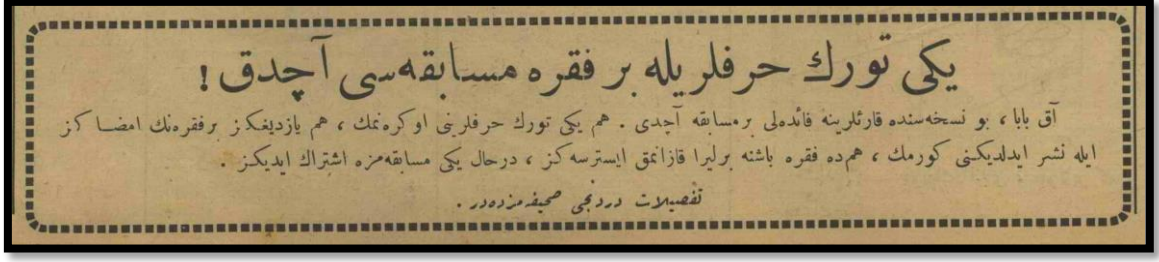 یکی تورك حرفلریله بر فقره مسابقه‌سی آچدق !
آق بابا ، بو نسخه‌سنده قارئلرینه فائده‌لی برمسابقه آچدی . هم یکی تورك حرفلرینی اوکره‌نمك ، هم یازدیغکز برفقره‌نك امضاکز
ایله نشر ایدلدیکنی کورمك ، هم‌ده فقره باشنه برلیرا قازانمق ایسترسه‌کز ، درحال یکی مسابقه‌مزه اشتراك ایدیکز .
تفصیلات دردنجی صحیفه‌مزده‌در .